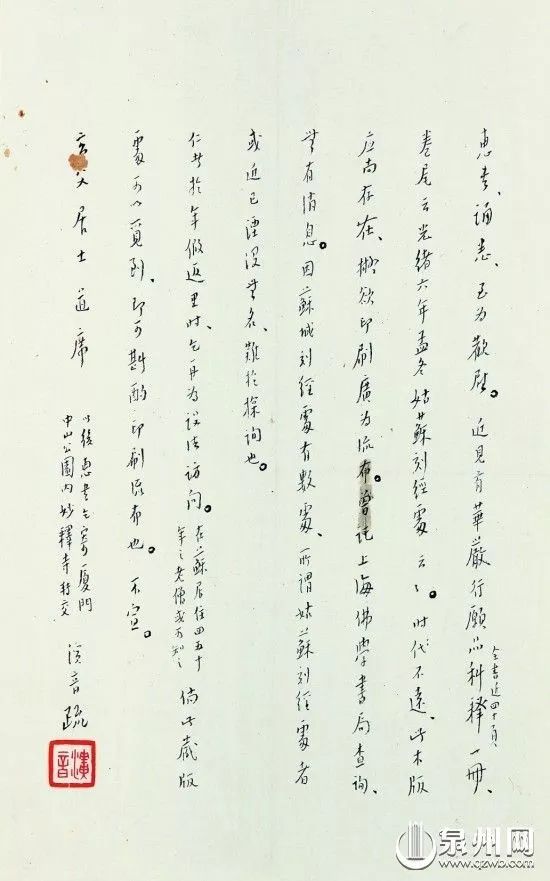 惠書、誦悉、至为歡慰。近見有華嚴行願品科釋一冊、
全書近四十頁
卷尾云光緒六年孟冬姑蘇刻經處云云。时代不遠、此木版
应尚存在、擬欲印刷廣为流布。曾託上海佛學書局查询、
無有消息。因蘇城刻經處有數處、所謂姑蘇刻經處者
或近已湮没無名、難於探询也。
仁者於年假返里时、乞再为设法访问。
在蘇居住四五十
年之老僧或可知之
倘此藏版
處可以覓到、即可斟酌印刷流布也。不宣。
居士道席
以後惠書乞寄厦門
中山公園内妙釋寺轉交
演音疏
演音
泉州网
www.qzwb.com